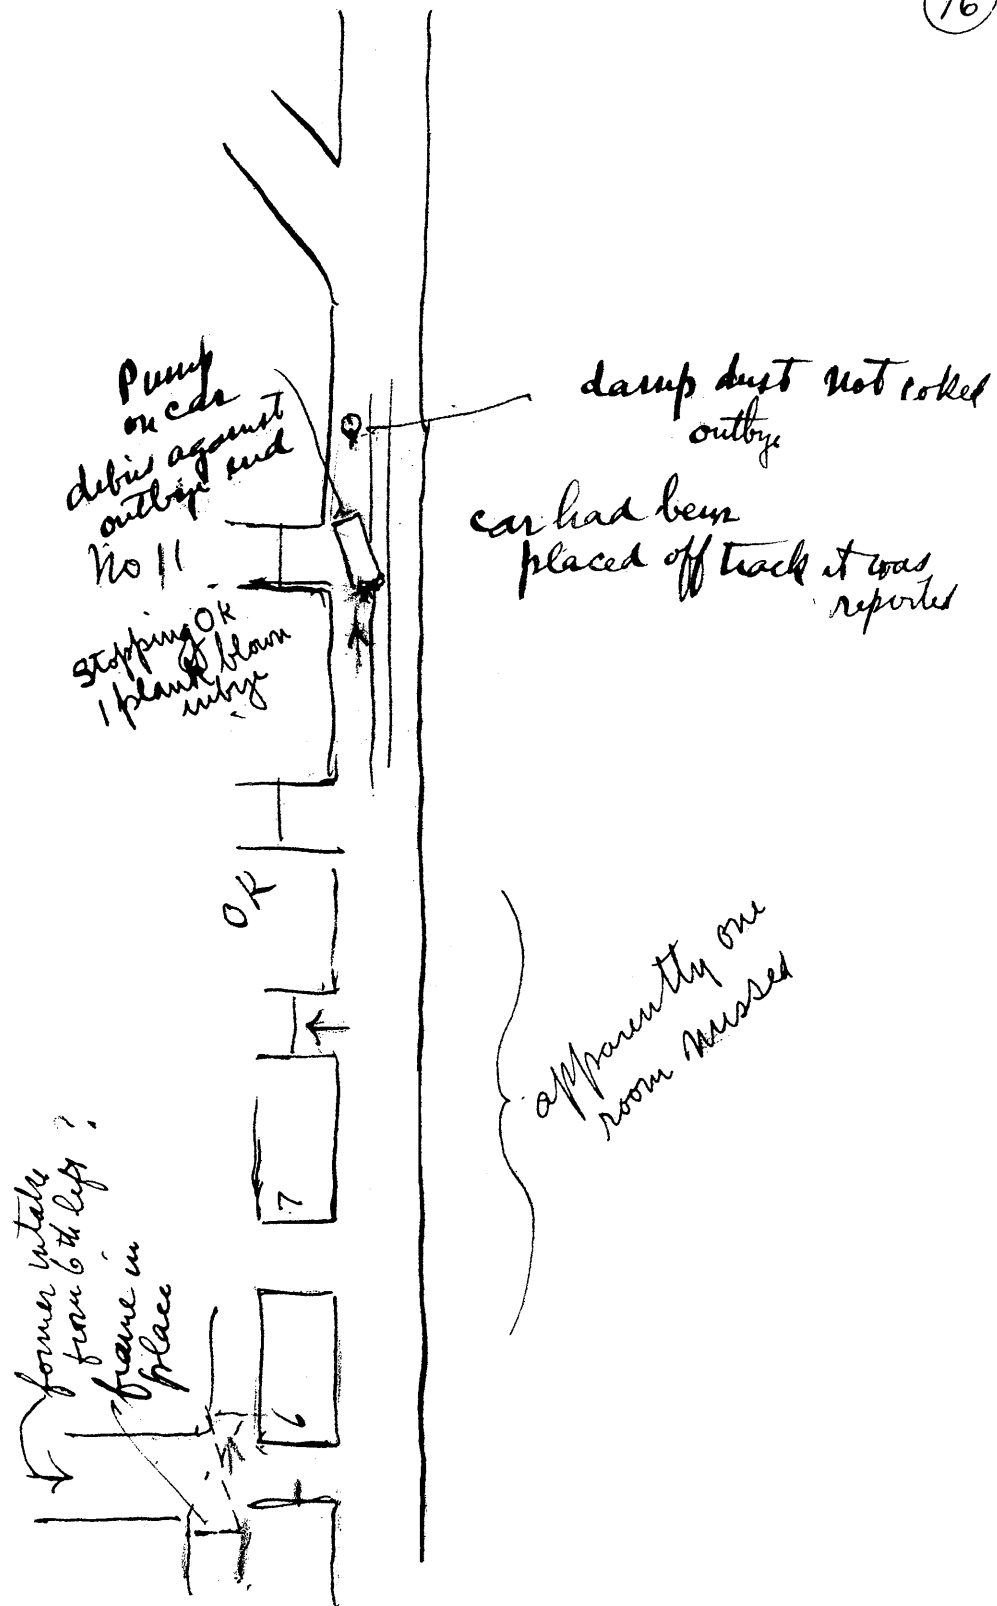 16
Pump
on car
debris against
outbye end
No 11
stopping OK
1 plank blown
inbye
damp dust not coked
outbye
car had been
placed off track it was
reported
OK
apparently one
room missed
7
former intake
from 6th left?
frame in
place
6